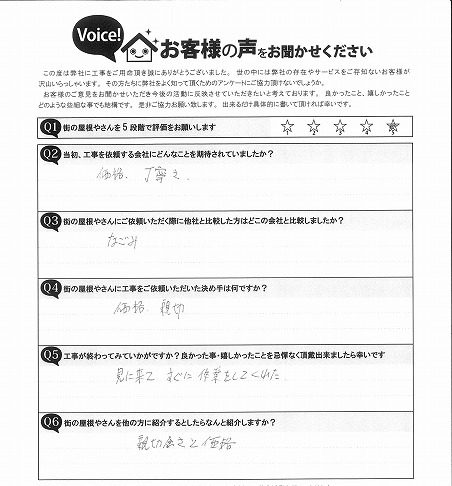 Voice!
お客様の声をお聞かせください
この度は弊社に工事をご用命頂き誠にありがとうございました。世の中には弊社の存在やサービスをご存知ないお客様が
沢山いらっしゃいます。その方たちに弊社をよく知って頂くためのアンケートにご協力頂けないでしょうか。
お客様のご意見をお聞かせいただき今後の活動に反映させていただきたいと考えております。良かったこと、嬉しかったこと
どのような些細な事でも結構です。是非ご協力お願い致します。出来るだけ具体的に書いて頂ければ幸いです。
Q1 街の屋根やさんを5段階で評価をお願いします
1 2 3 4 5
Q2 当初、工事を依頼する会社にどんなことを期待されていましたか?
価格、丁寧さ
Q3 街の屋根やさんにご依頼いただく際に他社と比較した方はどこの会社と比較しましたか?
なごみ
Q4 街の屋根やさんに工事をご依頼いただいた決め手は何ですか?
価格、親切
Q5 工事が終わってみていかがですか?良かった事・嬉しかったことを忌憚なく頂戴出来ましたら幸いです
見に来て すぐに 作業をしてくれた
Q6 街の屋根やさんを他の方に紹介するとしたらなんと紹介しますか?
親切 と価格